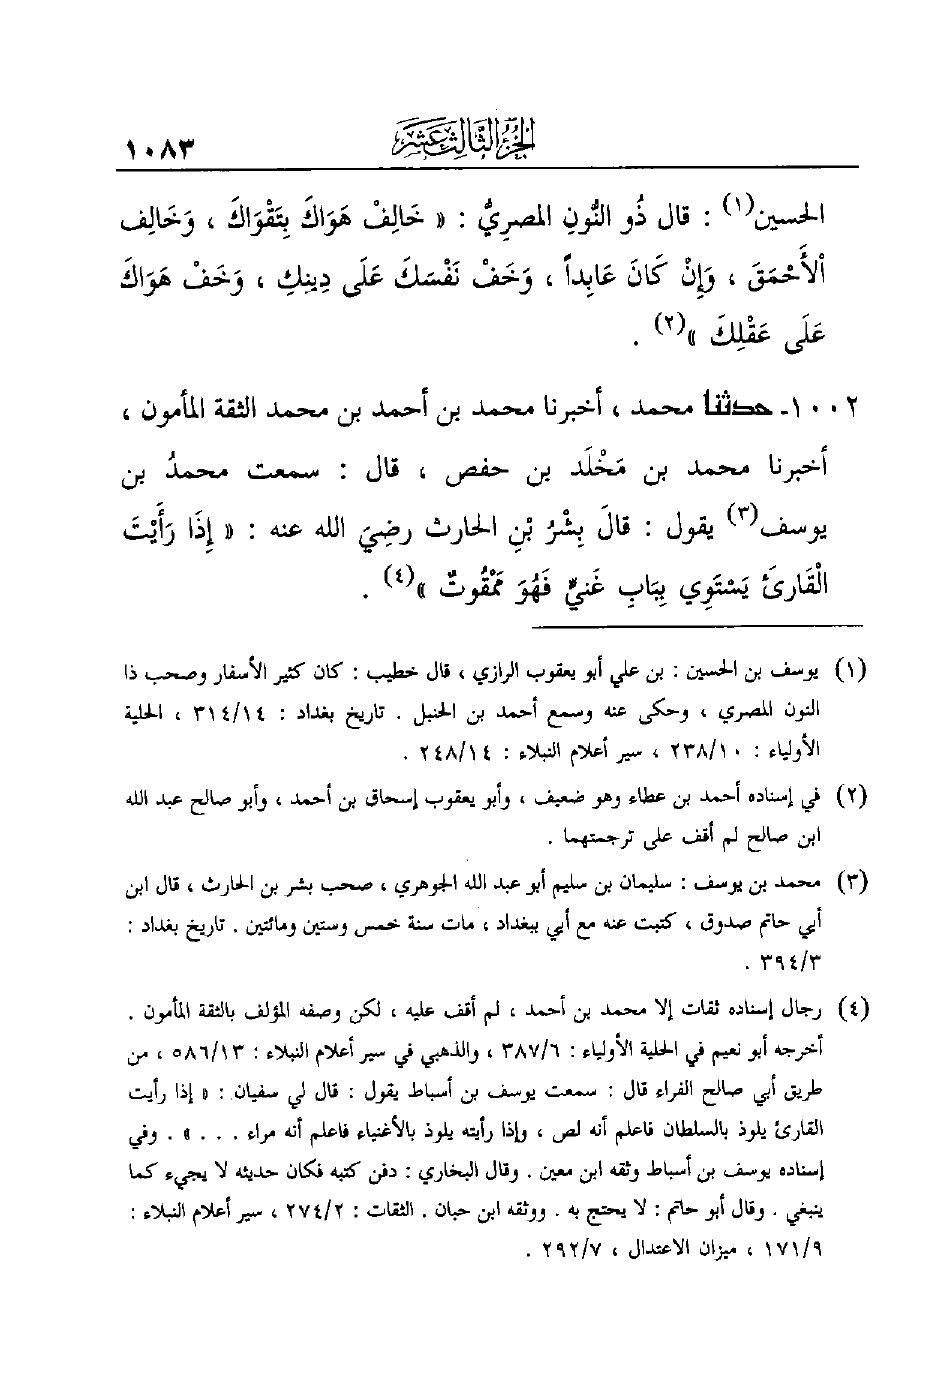 الجزء الثالث عشر ١٠٨٣
الحسين(١) : قال ذُو النُّونِ المصرِيُّ : « خَالِفْ هَوَاكَ بِتَقْوَاكَ ، وَخَالِف
ألأَحْمَقَ ، وَإِنْ كَانَ عَابِداً ، وَخَفْ نَفْسَكَ عَلَى دِينِكِ ، وَخَفْ هَوَاكَ
عَلَى عَقْلِكَ »(٢) .
١٠٠٢- حدثنا محمد ، أخبرنا محمد بن أحمد بن محمد الثقة المأمون ،
أخبرنا محمد بن مَخْلَد بن حفص ، قال : سمعت محمدُ بن
يوسف(٣) يقول : قالَ بِشْرُ بْنِ الحارث رضِيَ الله عنه : « إِذَا رَأَيْتَ
الْقَارِئَ يَسْتَوِي بِبَابِ غَنيٍّ فَهُوَ مَمْقُوتٌ »(٤) .
(١) يوسف بن الحسين : بن علي أبو يعقوب الرازي ، قال خطيب : كان كثير الأسفار وصحب ذا
النون المصري ، وحكى عنه وسمع أحمد بن الحنبل . تاريخ بغداد : ٣١٤/١٤ ، الحلية
الأولياء : ٢٣٨/١٠ ، سير أعلام النبلاء : ٢٤٨/١٤ .
(٢) في إسناده أحمد بن عطاء وهو ضعيف ، وأبو يعقوب إسحاق بن أحمد ، وأبو صالح عبد الله
ابن صالح لم أقف على ترجمتهما .
(٣) محمد بن يوسف : سليمان بن سليم أبو عبد الله الجوهري ، صحب بشر بن الحارث ، قال ابن
أبي حاتم صدوق ، كتبت عنه مع أبي ببغداد ، مات سنة خمس وستين ومائتين . تاريخ بغداد :
٣٩٤/٣ .
(٤) رجال إسناده ثقات إلا محمد بن أحمد ، لم أقف عليه ، لكن وصفه المؤلف بالثقة المأمون .
أخرجه أبو نعيم في الحلية الأولياء : ٣٨٧/٦ ، والذهبي في سير أعلام النبلاء : ٥٨٦/١٣ ، من
طريق أبي صالح الفراء قال : سمعت يوسف بن أسباط يقول : قال لي سفيان : « إذا رأيت
القارئ يلوذ بالسلطان فاعلم أنه لص ، وإذا رأيته يلوذ بالأغنياء فاعلم أنه مراء . . . » . وفي
إسناده يوسف بن أسباط وثقه ابن معين . وقال البخاري : دفن كتبه فكان حديثه لا يجيء كما
ينبغي . وقال أبو حاتم : لا يحتج به . ووثقه ابن حبان . الثقات : ٢٧٤/٢ ، سير أعلام النبلاء :
١٧١/٩ ، ميزان الاعتدال ، ٢٩٢/٧ .